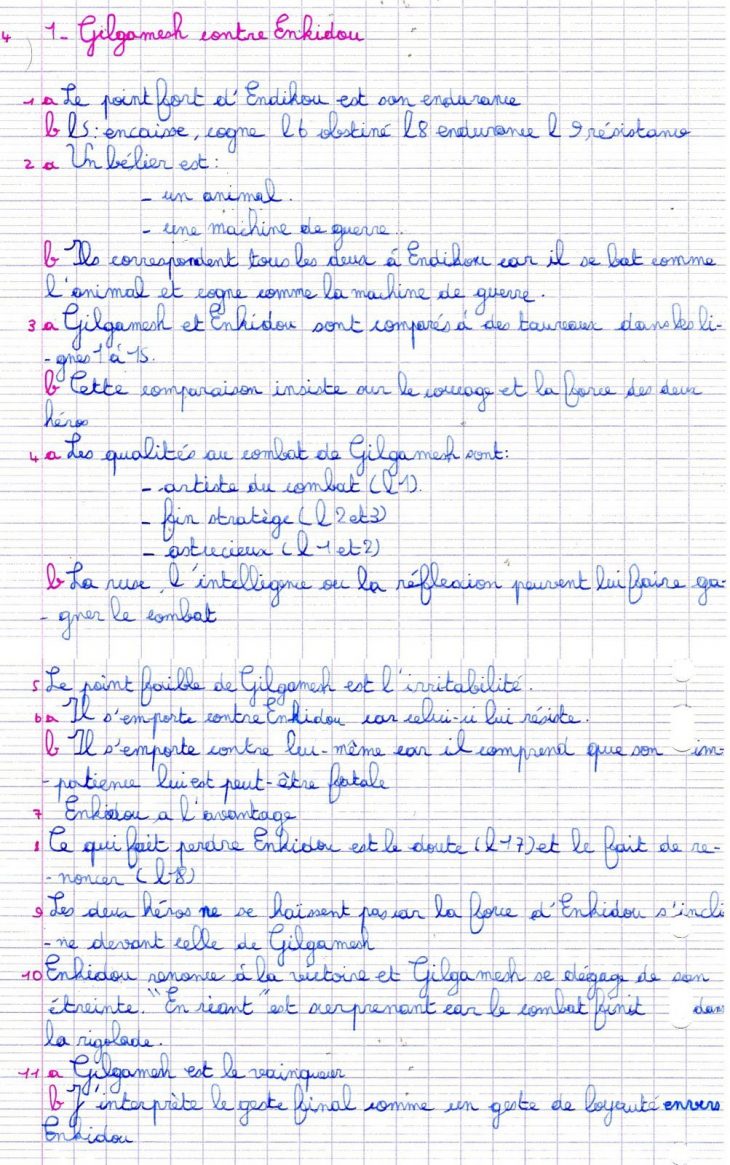 4 1- Gilgamesh contre Enkidou
1 a Le point fort d'Endikou est son endurance
b l5: encaisse, cogne l6 obstiné l8 endurance l 9 résistance
2 a Un bélier est:
- un animal.
- une machine de guerre.
b Ils correspondent tous les deux à Endikou car il se bat comme
l'animal et cogne comme la machine de guerre.
3 a Gilgamesh et Enkidou sont comparés à des taureaux dans les li-
-gnes 1 à 15.
b Cette comparaison insiste sur le courage et la force des deux
héros
4 a Les qualités au combat de Gilgamesh sont:
- artiste du combat (l 1).
- fin stratège (l 2 et 3)
- astucieux (l 1 et 2)
b La ruse, l'intelligence ou la réflexion peuvent lui faire ga-
-gner le combat
5 Le point faible de Gilgamesh est l'irritabilité.
6 a Il s'emporte contre Enkidou car celui-ci lui résiste.
b Il s'emporte contre lui-même car il comprend que son im-
-patience lui est peut-être fatale
7 Enkidou a l'avantage
8 Ce qui fait perdre Enkidou est le doute (l 17) et le fait de re-
-noncer (l 18)
9 Les deux héros ne se haïssent pas car la force d'Enkidou s'incli
-ne devant celle de Gilgamesh
10 Enkidou renonce à la victoire et Gilgamesh se dégage de son
étreinte. "En riant" est surprenant car le combat finit dans
la rigolade.
11 a Gilgamesh est le vainqueur
b J'interprète le geste final comme un geste de loyauté envers
Enkidou